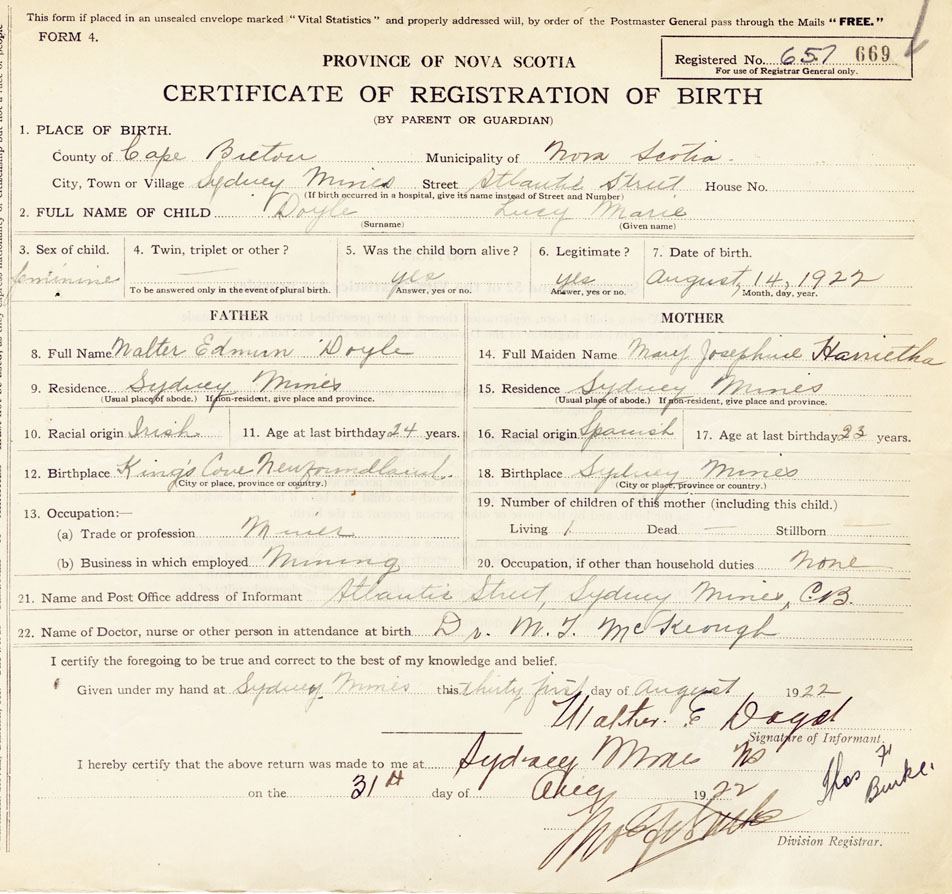 This form if placed in an unsealed envelope marked "Vital Statistics" and properly addressed will, by order of the Postmaster General pass through the Mails "FREE."
FORM 4.
Registered No. 657 669
For use of Registrar General only.
PROVINCE OF NOVA SCOTIA
CERTIFICATE OF REGISTRATION OF BIRTH
(BY PARENT OR GUARDIAN)
1. PLACE OF BIRTH.
County of Cape Breton Municipality of Nova Scotia.
City, Town or Village Sydney Mines Street Atlantic Street House No.
(If birth occurred in a hospital, give its name instead of Street and Number)
2. FULL NAME OF CHILD Doyle Lucy Marie
(Surname) (Given name)
3. Sex of child. 4. Twin, triplet or other? 5. Was the child born alive? 6. Legitimate? 7. Date of birth.
feminine — yes yes August, 14, 1922
To be answered only in the event of plural birth. Answer, yes or no. Answer, yes or no. Month, day, year.
FATHER MOTHER
8. Full Name Walter Edmun Doyle 14. Full Maiden Name Mary Josephine
9. Residence Sydney Mines 15. Residence Sydney Mines
(Usual place of abode.) If non-resident, give place and province. (Usual place of abode.) If non-resident, give place and province.
10. Racial origin Irish 11. Age at last birthday 24 years. 16. Racial origin Spanish 17. Age at last birthday 23 years.
12. Birthplace King's Cove Newfoundland. 18. Birthplace Sydney Mines
(City or place, province or country.) (City or place, province or country.)
19. Number of children of this mother (including this child.)
13. Occupation:—
(a) Trade or profession Miner Living 1 Dead — Stillborn —
(b) Business in which employed Mining 20. Occupation, if other than household duties None
21. Name and Post Office address of Informant Atlantic Street, Sydney Mines, C.B.
22. Name of Doctor, nurse or other person in attendance at birth Dr. M. T. McKeough
I certify the foregoing to be true and correct to the best of my knowledge and belief.
Given under my hand at Sydney Mines this thirty first day of August 1922
Walter. E
Signature of Informant.
I hereby certify that the above return was made to me at Sydney Mines NS
on the 31st day of Aug 1922
Thos F Burke.
Division Registrar.